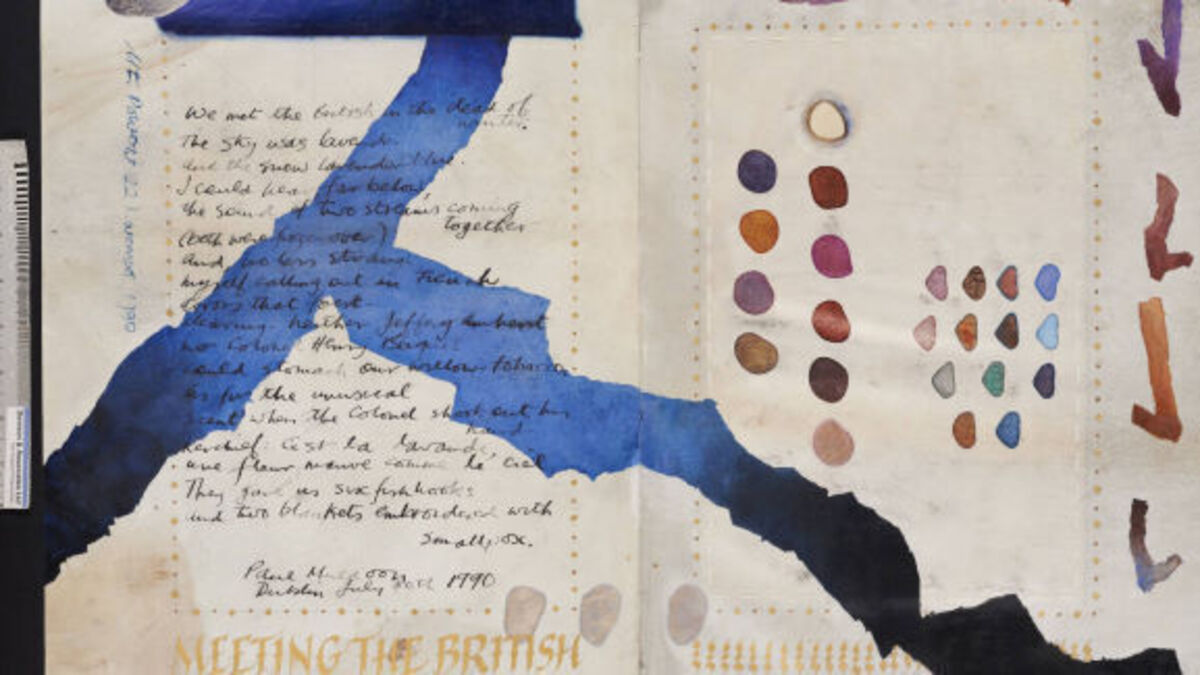 We met the British in the dead of
winter.
The sky was lavender
and the snow lavender-blue.
I could hear, far below,
the sound of two streams coming
together
(both were frozen over)
and no less strange
myself calling out in French
across that forest-
clearing. Neither Jeffrey Amherst
nor Colonel Henry Bouquet
could stomach our willow-tobacco.
As for the unusual
scent when the Colonel shook out his
hand-
kerchief: C'est la lavande,
une fleur mauve comme le ciel.
They gave us six fishhooks
and two blankets embroidered with
smallpox.
Paul Muldoon
Dublin July 1990
MEETING THE BRITISH